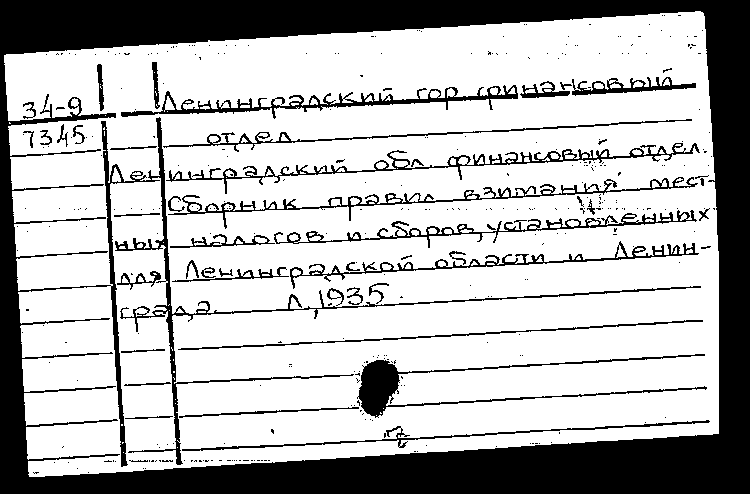 34-9 Ленинградский гор. финансовый
7345 отдел.
Ленинградский обл. финансовый отдел.
Сборник правил взимания мест-
ных налогов и сборов, установленных
для Ленинградской области и Ленин-
града. Л., 1935.